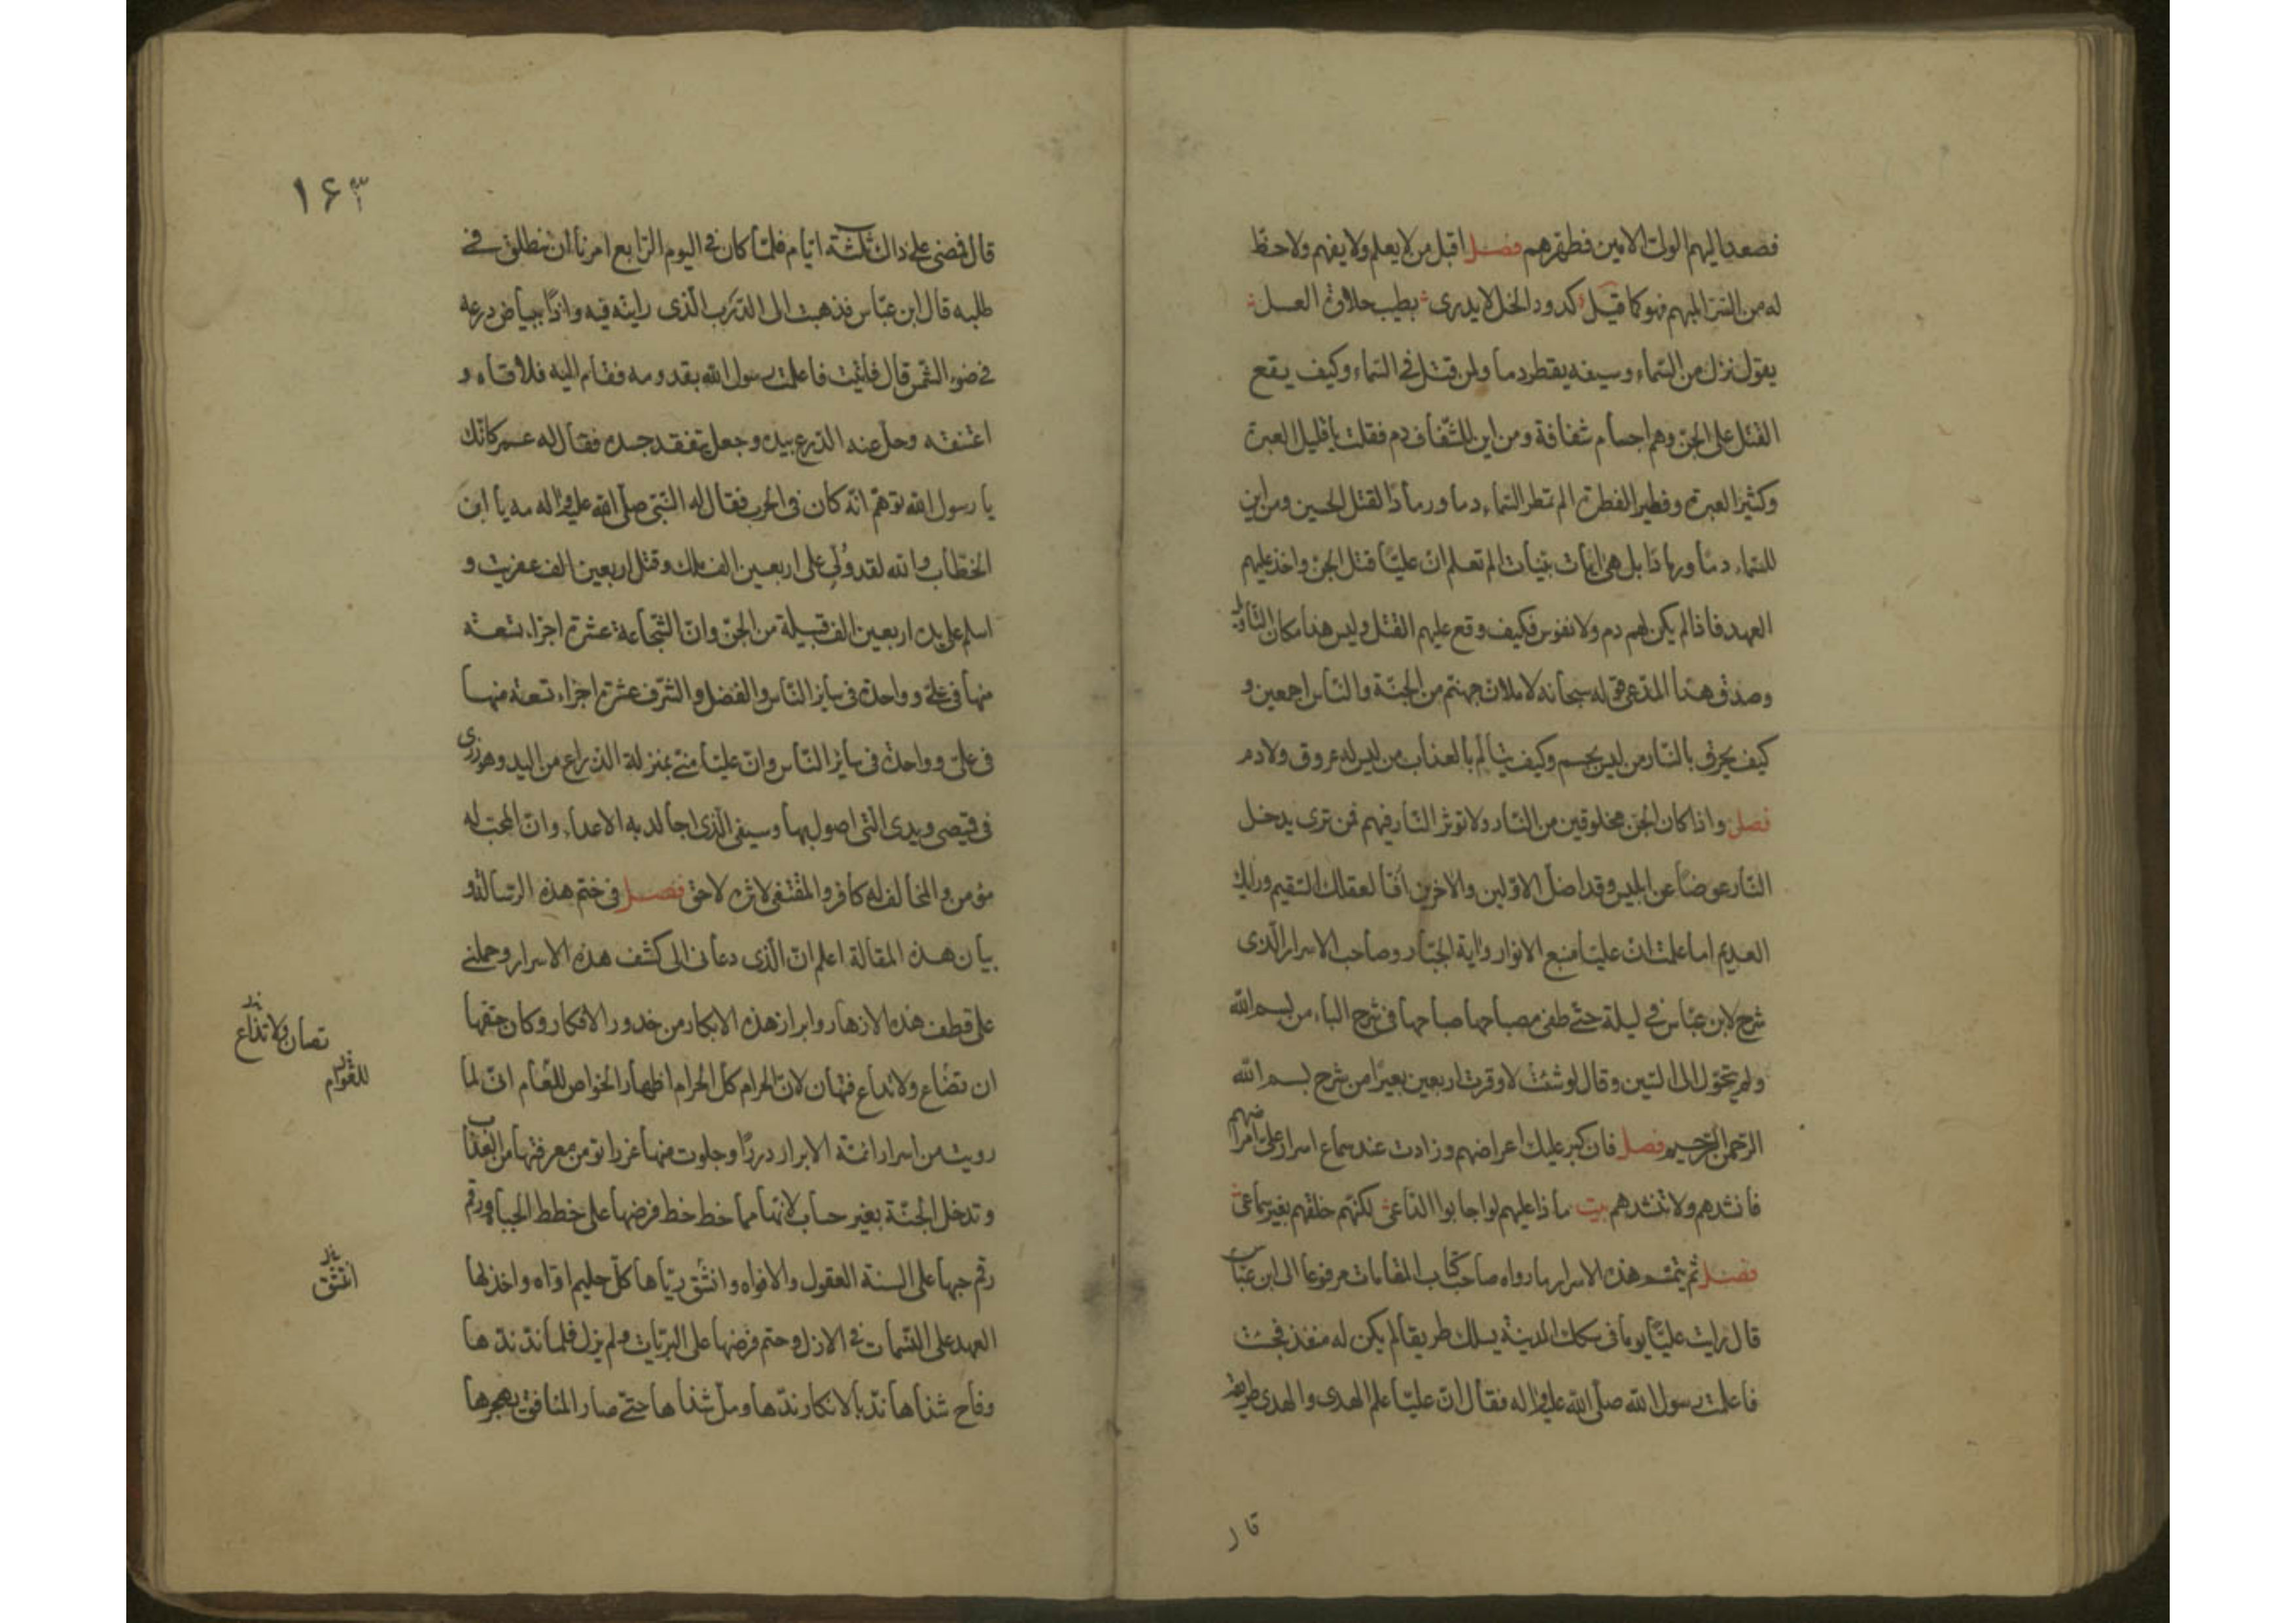 فصعد اليهم الولى الامين فطهرهم فصل اقبل من لا يعلم ولا يفهم ولا حظ
له من السر المبهم فهو كما قيل كدود الخل لا يدرى بطيب حلاوة العسل
يقول نزل من السماء وسيفه يقطر دما ولمن قتل فى السماء وكيف يقع
القتل على الجن وهم اجسام شفافة ومن اين للشفاف دم فقلت يا قليل العبرة
وكثير العبرة وفطير الفطرة الم تمطر السماء دما ورمادا لقتل الحسين ومن اين
للسماء دما ورمادا بل هى ايات بينات الم تعلم ان عليا قتل الجن واخذ عليهم
العهد فاذا لم يكن لهم دم ولا نفوس فكيف وقع عليهم القتل وليس هذا مكان التاويل
وصدق هذا المدعى قوله سبحانه لاملان جهنم من الجنة والناس اجمعين و
كيف يحرق بالنار من ليس بجسم وكيف يتالم بالعذاب من ليس له عروق ولا دم
فصل واذا كان الجن مخلوقين من النار ولا توثر النار فيهم فمن ترى يدخل
النار عوضا عن ابليس وقد اضل الاولين والاخرين افا لعقلك السقيم ورايك
العديم اما علمت ان عليا منبع الانوار واية الجبار وصاحب الاسرار الذى
شرح لابن عباس فى ليلة حتى طفى مصباحها صباحها فى شرح الباء من بسم الله
ولم يتحول الى السين وقال لو شئت لاوقرت اربعين بعيرا من شرح بسم الله
الرحمن الرحيم فصل فان كبر عليك اعراضهم وزادت عند سماع اسرار على امراضهم
فانشدهم ولا تنشدهم بيت ماذا عليهم لو اجابوا الداعى لكنهم خلقهم بغير سماعى
فصل ثم يتمم هذه الاسرار ما رواه صاحب كتاب المقامات مرفوعا الى ابن عباس
قال رايت عليا يوما فى سكك المدينة يسلك طريقا لم يكن له منفذ فجئت
فاعلمت رسول الله صلى الله عليه واله فقال ان عليا علم الهدى والهدى طريقه
قال
١۶۳
قال فمضى على ذلك ثلثة ايام فلما كان فى اليوم الرابع امرنا ان ننطلق فى
طلبه قال ابن عباس فذهبت الى الدرب الذى رايته فيه واذا ببياض درعه
فى ضوء الشمس قال فاتيت فاعلمت رسول الله بقدومه فقام اليه فلاقاه و
اعتنقه وحل عنه الدرع بيده وجعل يتفقد جسده فقال له عمر كانك
يا رسول الله توهم انه كان فى الحرب فقال له النبى صلى الله عليه واله مه يا ابن
الخطاب والله لقد ولى على اربعين الف ملك وقتل اربعين الف عفريت و
اسلم على يده اربعين الف قبيلة من الجن وان الشجاعة عشرة اجزاء تسعة
منها فى على وواحدة فى ساير الناس والفضل والشرف عشرة اجزاء تسعة منها
فى على وواحدة فى ساير الناس وان عليا منى بمنزلة الذراع من اليد وهو زرى
فى قميصى ويدى التى اصول بها وسيفى الذى اجالد به الاعداء وان المحب له
مؤمن والمخالف له كافر والمقتفى لاثره لاحق فصل فى ختم هذه الرسالة و
بيان هذه المقالة اعلم ان الذى دعانى الى كشف هذه الاسرار وحملنى
على قطف هذه الازهار وابراز هذه الابكار من خدور الافكار وكان حقها
ان تضاع ولا تذاع فتهان لان الحرام كل الحرام اظهار الخواص للعام انى لما
رويت من اسرار ائمة الابرار دررا وجلوت منها غررا تومن معرفتها من العذاب
وتدخل الجنة بغير حساب لانها مما خط خط فرضها على خطط الحباه ورقم
رقم حبها على السنة العقول والافواه وانشق رياها كل حليم اواه واخذ لها
العهد على النسمات فى الازل وحتم فرضها على البريات ولم يزل فلما ند ندها
وفاح شذاها ند بالانكار ندها ومل شذاها حتى صار المنافق يهجرها
تصان ولا تذاع
للعوام
انتشق